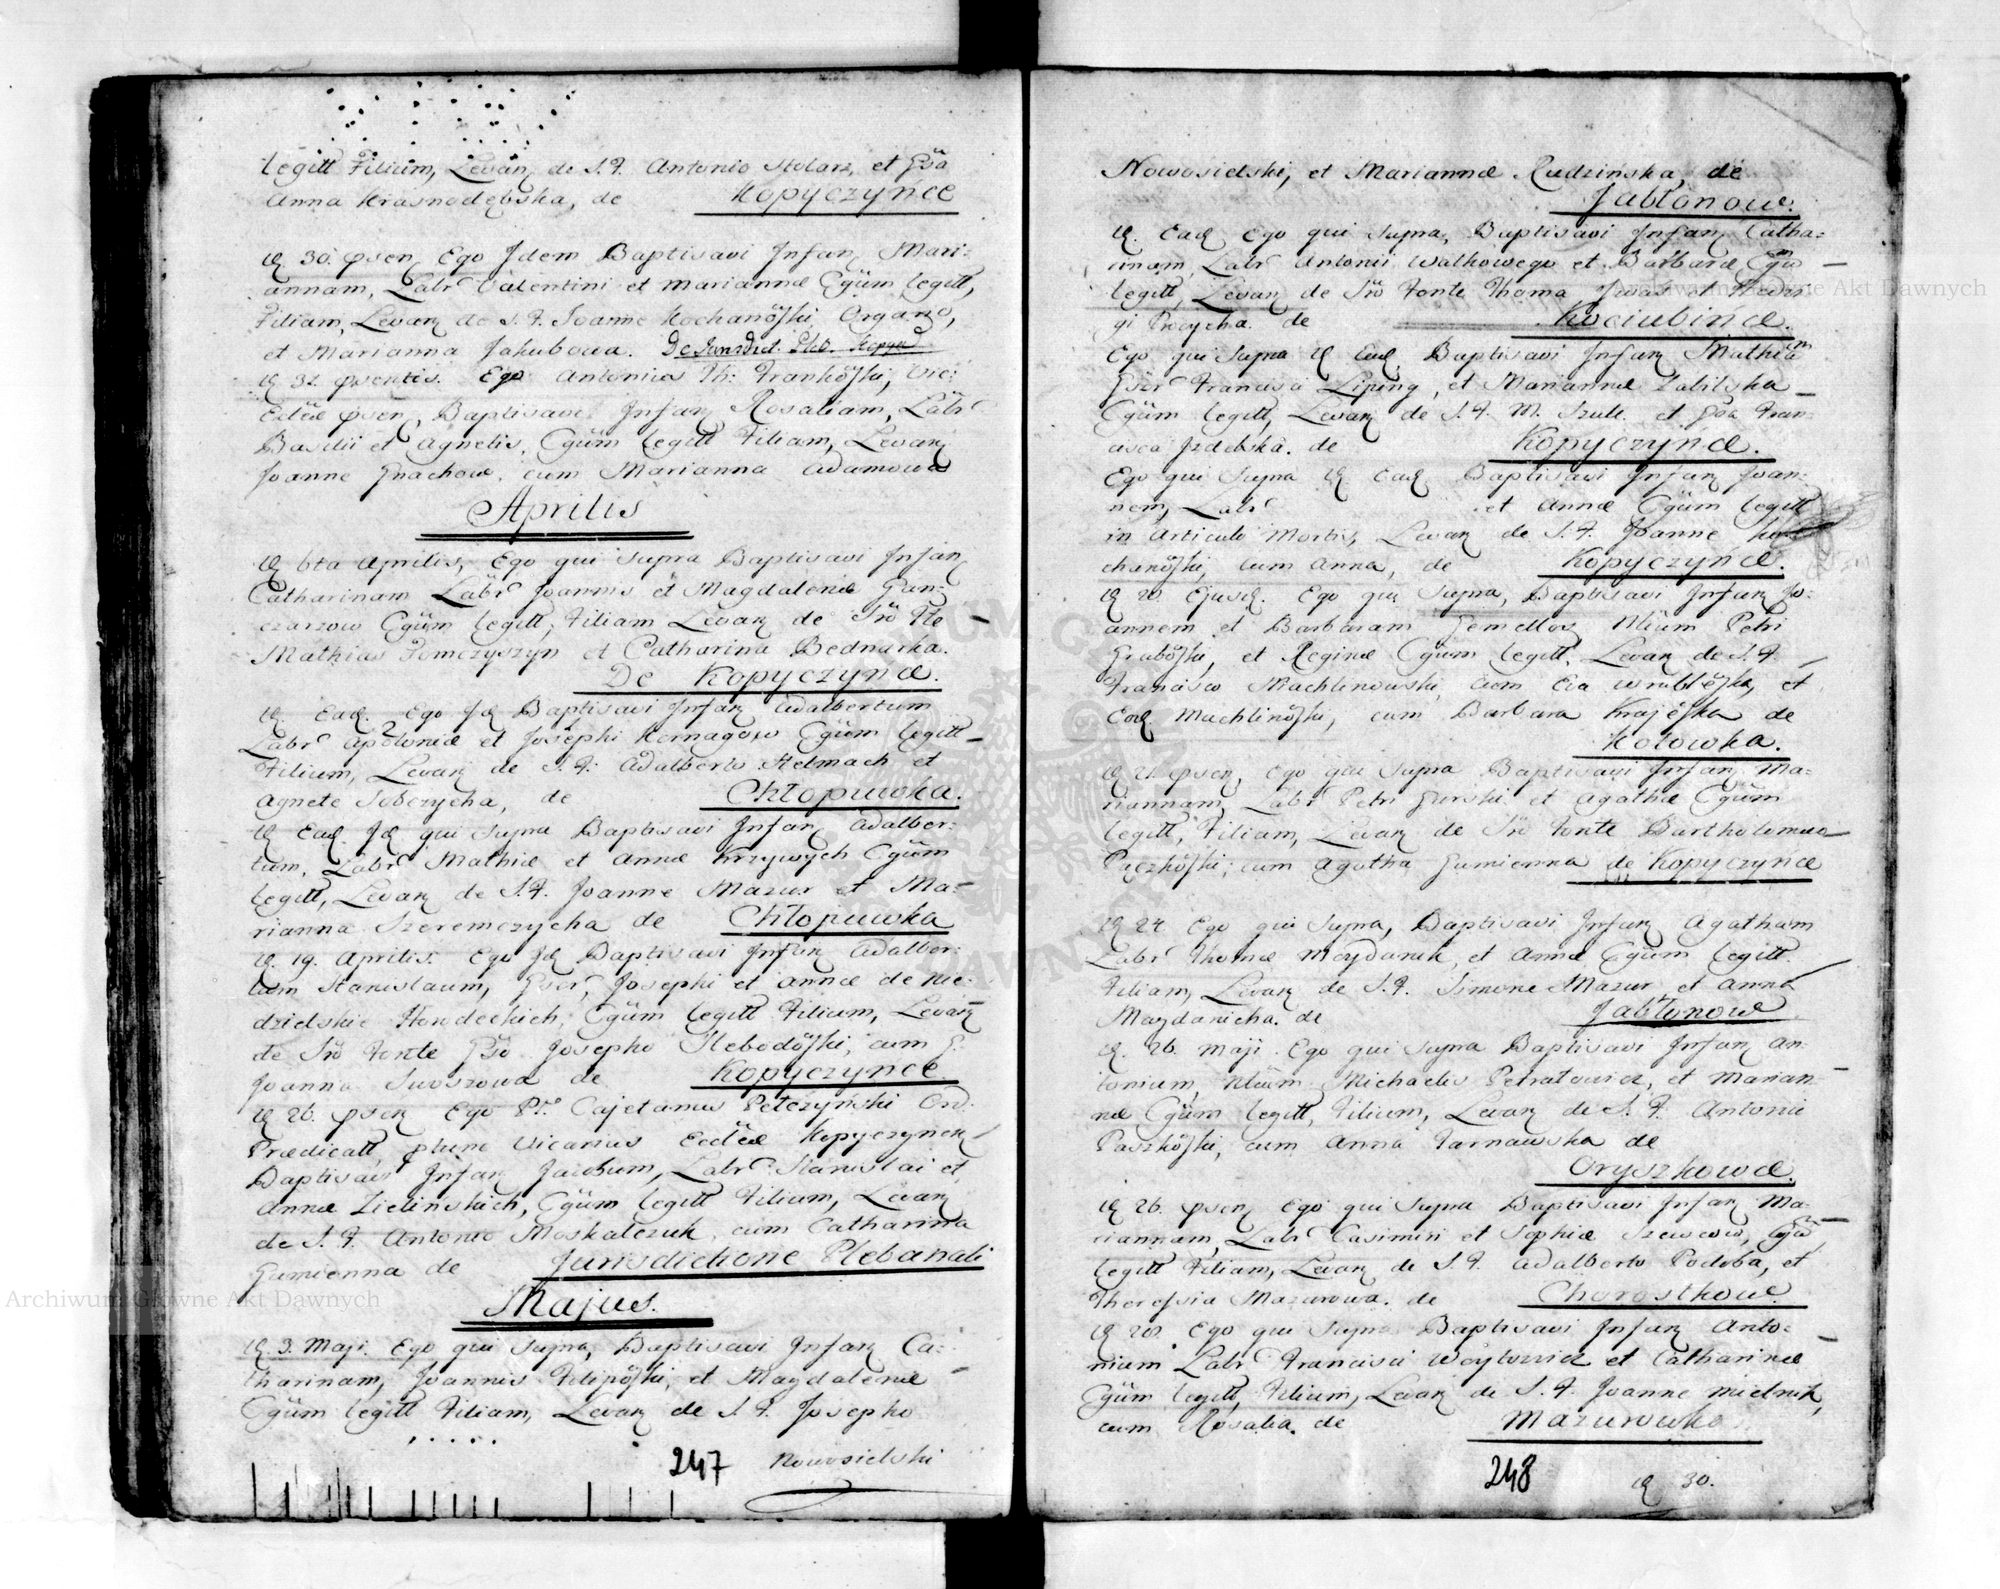 legitt Filium, Levan de S. F. Antonio Stolarz, et Gsa
Anna Krasnodębska, de Kopyczynce
30. psen Ego Idem Baptisavi Infan Mari:
annam, Labr Valentini et Mariannæ Cgum legitt,
Filiam, Levan de S. F. Joanne Kochanoski Organo,
et Marianna Jakubowa. De Jurisdict. Pleb. Kopycz
31. psentis. Ego Antonius Th: Frankoski, Vic:
Ecclæ psen, Baptisavi Infan Rosaliam, Labr
Basilii et Agnetis, Cgum legitt Filiam, Levan
Joanne Gnachow, cum Marianna Adamowa
Aprilis
6ta Aprilis, Ego qui supra Baptisavi Infan
Catharinam Labr Joannis et Magdalenæ Gan:
czarzow Cgum legitt, Filiam Levan de Sro Fte
Mathias Tomczyszyn et Catharina Bednarka.
De Kopyczynce.
Ead. Ego Id Baptisavi Infan Adalbertum
Labr Apoloniæ et Josephi Kornagow Cgum legitt
Filium, Levan de S. F. Adalberto Stelmach et
Agnete Sobczycha, de Chłopuwka.
Ead. Id qui Supra Baptisavi Infan Adalber:
tum, Labr Mathiæ et Annæ Krzywych Cgum
legitt, Levan de S. F. Joanne Mazur et Ma-
rianna Szeremczycha de Chłopuwka
19. Aprilis. Ego Id Baptisavi Infan Adalber:
tum Stanislaum, Gser, Josephi et Annæ de Nie:
dzielskie Hendeckich, Cgum legitt Filium, Levan
de Sro Fonte Gso Josepho Slebodoski, cum G.
Joanna Suoszowa de Kopyczynce
26. psen Ego Pr Cajetanus Petczyński Ord.
Prædicatt, phunc Vicarius Ecclæ Kopyczynen
Baptisavi Infan Jacobum, Labr Stanislai et
Annæ Zielinskich, Cgum legitt Filium, Levan
de S. F. Antonio Moskalczuk, cum Catharina
Gumienna de Jurisdictione Plebanali
Majus.
3. Maji. Ego qui supra, Baptisavi Infan Ca:
tharinam, Joannis Filiposki, et Magdalenæ
Cgum legitt Filiam, Levan de S. F. Josepho
247 Nowosielski
Nowosielski, et Mariannæ Rudzińska, de
Jabłonow.
Ead Ego qui Supra, Baptisavi Infan Catha:
rinam, Labr Antonii Walkowego et Barbaræ Cgu
legitt, Levan de Sro Fonte Thoma et
gi Procycha. de Kociubincæ.
Ego qui Supra Ead, Baptisavi Infan Mathiam
Gser Francisci Liping, et Mariannæ Zabilska
Cgum legitt, Levan de S. F. M. Szulc. et Gsa Fran-
cisca Izdebska. de Kopyczyncæ.
Ego qui Supra Ead Baptisavi Infan Joan:
nem, Labr et Annæ Cgum legitt
in Articulo Mortis, Levan de S. F. Joanne Ko
chanoski, cum Anna, de Kopyczyncæ.
20. Ejusd. Ego qui Supra, Baptisavi Infan Jo:
annem et Barbaram Gemellos Nlium Petri
Graboski, et Reginæ Cgum legitt. Levan de S. F.
Francisco Machlinowski, cum Eva Wrubleska, et
Eod. Machlinoski, cum Barbara Krajeska de
Kotowka.
21. psen, Ego qui Supra Baptisavi Infan Ma:
riannam, Labr Petri Gurski et Agathæ Cgum
legitt, Filiam, Levan de Sro Fonte Bartholomæo
Pączkoski, cum Agatha Gumienna de Kopyczynce
24 Ego qui Supra, Baptisavi Infan Agatham
Labr Thomæ Meydanik, et Annæ Cgum legitt.
Filiam, Levan de S. F. Simone Mazur et Anna
Mazdanicha. de Jabłonow
26. Maji. Ego qui Supra Baptisavi Infan An:
tonium, Nlium Michaelis Petratowicz, et Marian-
næ Cgum legitt, Filium, Levan de S. F. Antonio
Paszkoski, cum Anna Tarnawska de
Oryszkowce.
26. psen, Ego qui Supra Baptisavi Infan Ma:
riannam, Labr Casimiri et Sophiæ Szewcow, Cgu
legitt Filiam, Levan de S. F. Adalberto Podoba, et
Theressia Mazurowa. de Chorostkow.
28. Ego qui Supra Baptisavi Infan Anto:
nium Labr Francisci Woytowicz et Catharinæ
Cgum legitt, Filium, Levan de S. F. Joanne Mielnik,
cum Rosalia. de Mazurowka
248 30.
Archiwum Główne Akt Dawnych
Archiwum Główne Akt Dawnych